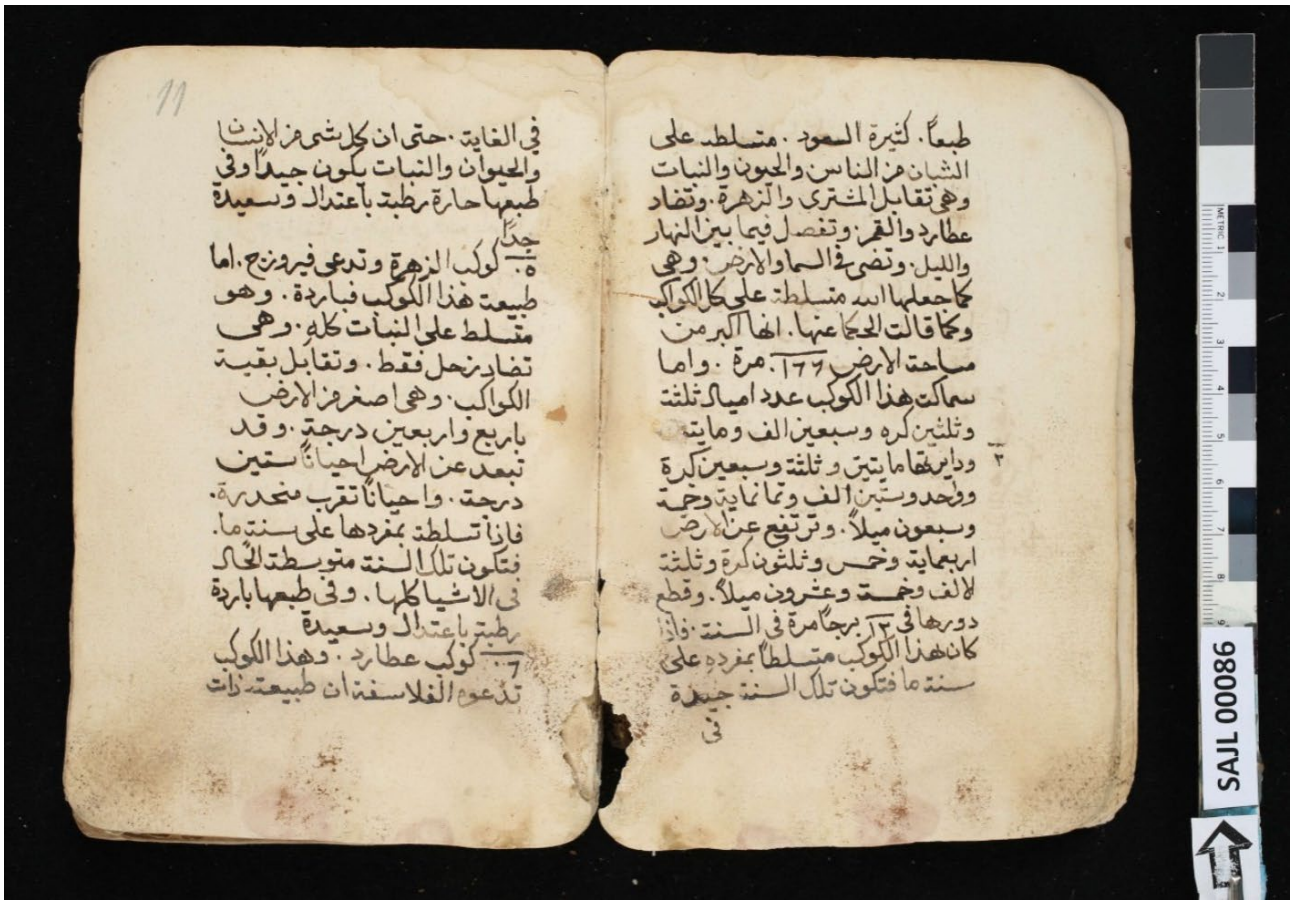 طبعاً. كثيرة السعود. متسلطه على
الشبان من الناس والحيون والنبات
وهي تقابل المشترى والزهرة. وتضاد
عطارد والقمر. وتفصل فيما بين النهار
والليل. وتضى في السما والارض. وهي
كما جعلها الله متسلطة على كل الكواكب
وكما قالت الحكما عنها. انها اكبر من
مساحة الارض ١٦٦. مرة. واما
سماكت هذا الكوكب عدد اميال ثلثة
وثلثين كره وسبعين الف ومايتين
ودايرتها مايتين وثلثة وسبعين كرة
وواحد وستين الف وتمانماية وخمسة
وسبعون ميلاً. وترتفع عن الارض
اربعماية وخمس وثلثون كرة وثلثة
الالف وخمسة وعشرون ميلاً. وقطع
دورها في ١٢ برجاً مرة في السنة. فاذا
كان هذا الكوكب متسلطاً بمفرده على
سنة ما فتكون تلك السنة جيدة
في
٣
11
في الغاية. حتى ان كل شى من الانسان
والحيوان والنبات يكون جيداً وفي
طبعها حارة رطبة باعتدال وسعيدة
جداً
٥. كوكب الزهرة وتدعى فيروزج. اما
طبيعة هذا الكوكب فباردة. وهو
متسلط على النبات كله. وهي
تضاد زحل فقط. وتقابل بقية
الكواكب. وهي اصغر من الارض
باربع واربعين درجة. وقد
تبعد عن الارض احياناً ستين
درجة. واحياناً تقرب منحدرة.
فاذا تسلطة بمفردها على سنة ما.
فتكون تلك السنة متوسطة الحال
في الاشيا كلها. وفي طبعها باردة
رطبة باعتدال وسعيدة
٦. كوكب عطارد. وهذا الكوكب
تدعوه الفلاسفة ان طبيعته ذات
METRIC 1
2
3
4
5
6
7
8
9
SAJL 00086